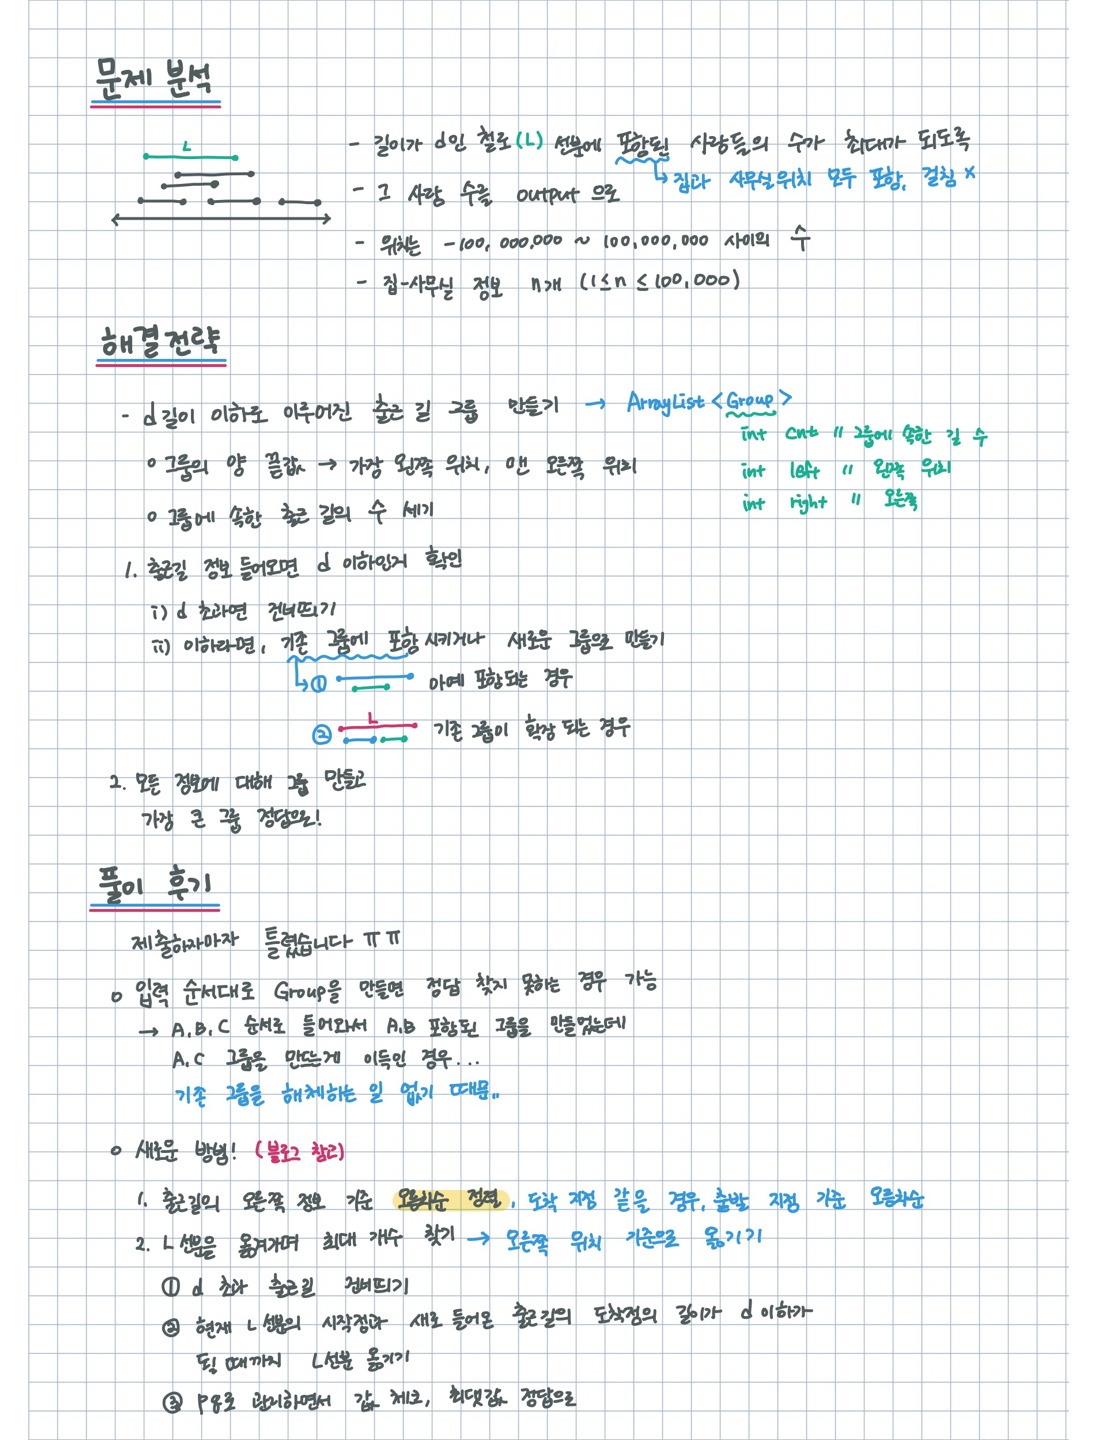 문제 분석
L
- 길이가 d인 철로(L) 선분에 포함된 사람들의 수가 최대가 되도록
↳ 집과 사무실위치 모두 포함, 걸침 x
- 그 사람 수를 output 으로
- 위치는 -100,000,000 ~ 100,000,000 사이의 수
- 집-사무실 정보 n개 (1≤n≤100,000)
해결전략
- d길이 이하로 이루어진 출근 길 그룹 만들기 → ArrayList<Group>
int cnt // 그룹에 속한 길 수
o 그룹의 양 끝값 → 가장 왼쪽 위치, 맨 오른쪽 위치
int left // 왼쪽 위치
int right // 오른쪽
o 그룹에 속한 출근 길의 수 세기
1. 출근길 정보 들어오면 d 이하인지 확인
i) d 초과면 건너뛰기
ii) 이하라면, 기존 그룹에 포함 시키거나 새로운 그룹으로 만들기
↳ ① 아예 포함되는 경우
L
② 기존 그룹이 확장 되는 경우
2. 모든 정보에 대해 그룹 만들고
가장 큰 그룹 정답으로!
풀이 후기
제출하자마자 틀렸습니다 ㅠㅠ
o 입력 순서대로 Group을 만들면 정답 찾지 못하는 경우 가능
→ A,B,C 순서로 들어와서 A,B 포함된 그룹을 만들었는데
A,C 그룹을 만드는게 이득인 경우...
기존 그룹을 해체하는 일 없기 때문..
o 새로운 방법! (블로그 참고)
1. 출근길의 오른쪽 정보 기준 오름차순 정렬, 도착 지점 같을 경우, 출발 지점 기준 오름차순
2. L선분을 옮겨가며 최대 개수 찾기 → 오른쪽 위치 기준으로 옮기기
① d 초과 출근길 건너뛰기
② 현재 L선분의 시작점과 새로 들어온 출근길의 도착점의 길이가 d 이하가
될 때까지 L선분 옮기기
③ pq로 관리하면서 값 체크, 최댓값 정답으로